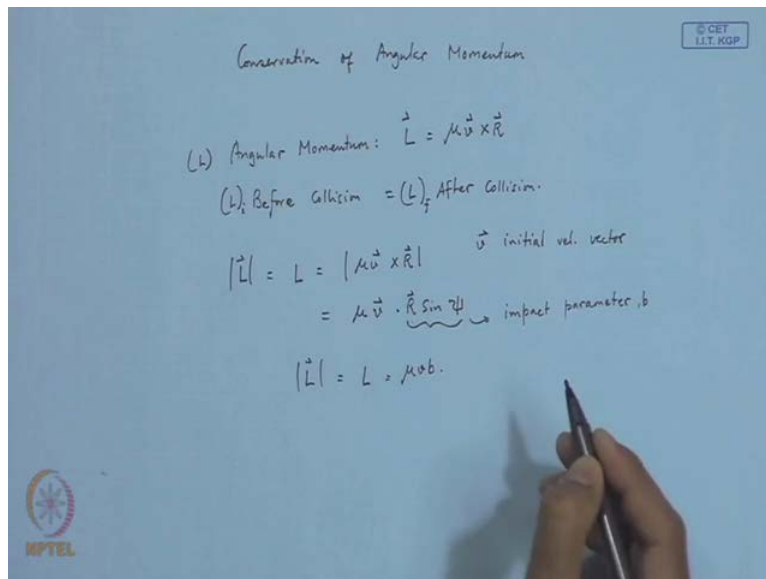 © CET
I.I.T. KGP
Conservation of Angular Momentum
(L) Angular Momentum: L⃗ = μv⃗ × R⃗
(L)i Before Collision = (L)f After Collision.
|L⃗| = L = |μv⃗ × R⃗| v⃗ initial vel. vector
= μv⃗ · R⃗ sin ψ → impact parameter, b
|L⃗| = L = μvb.
NPTEL